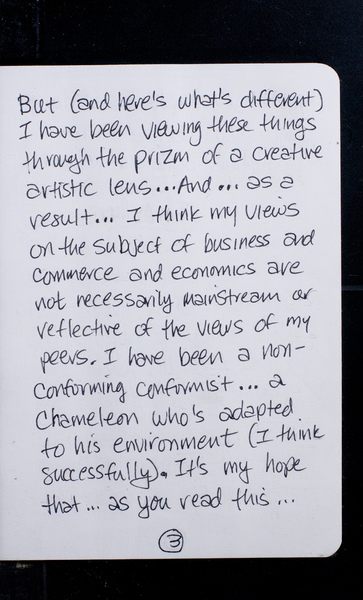 But (and here's what's different)
I have been viewing these things
through the prizm of a creative
artistic lens...And... as a
result... I think my views
on the subject of business and
commerce and economics are
not necessarily mainstream or
reflective of the views of my
peers. I have been a non-
conforming conformist... a
chameleon who's adapted
to his environment (I think
successfully). It's my hope
that... as you read this...
3